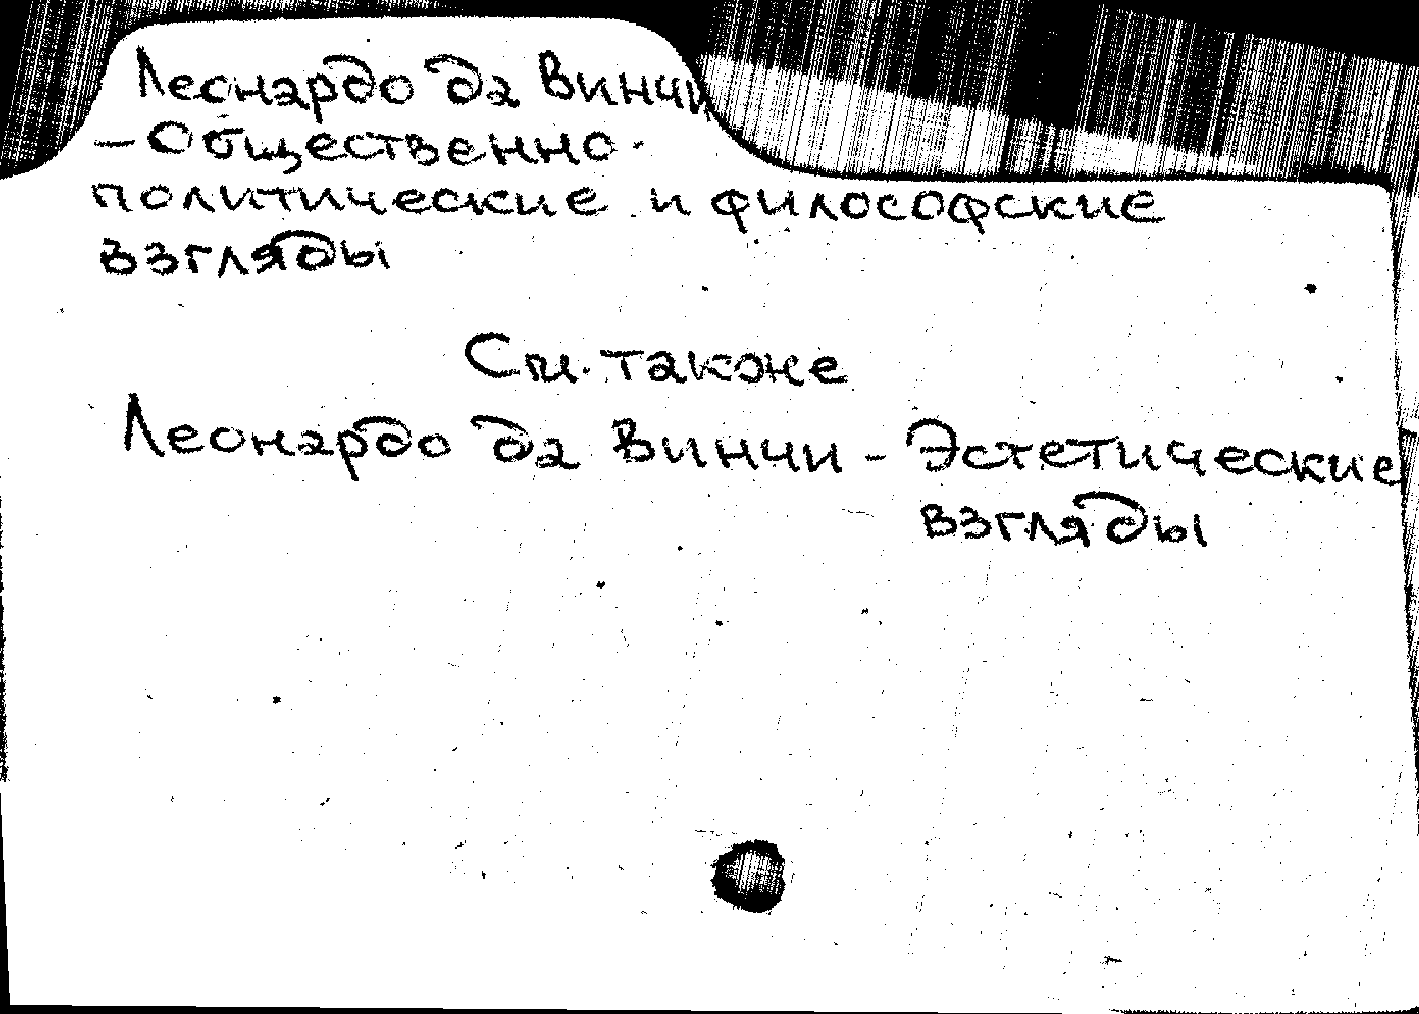 Леонардо да Винчи
– Общественно-
политические и философские
взгляды
См. также
Леонардо да Винчи – Эстетические
взгляды